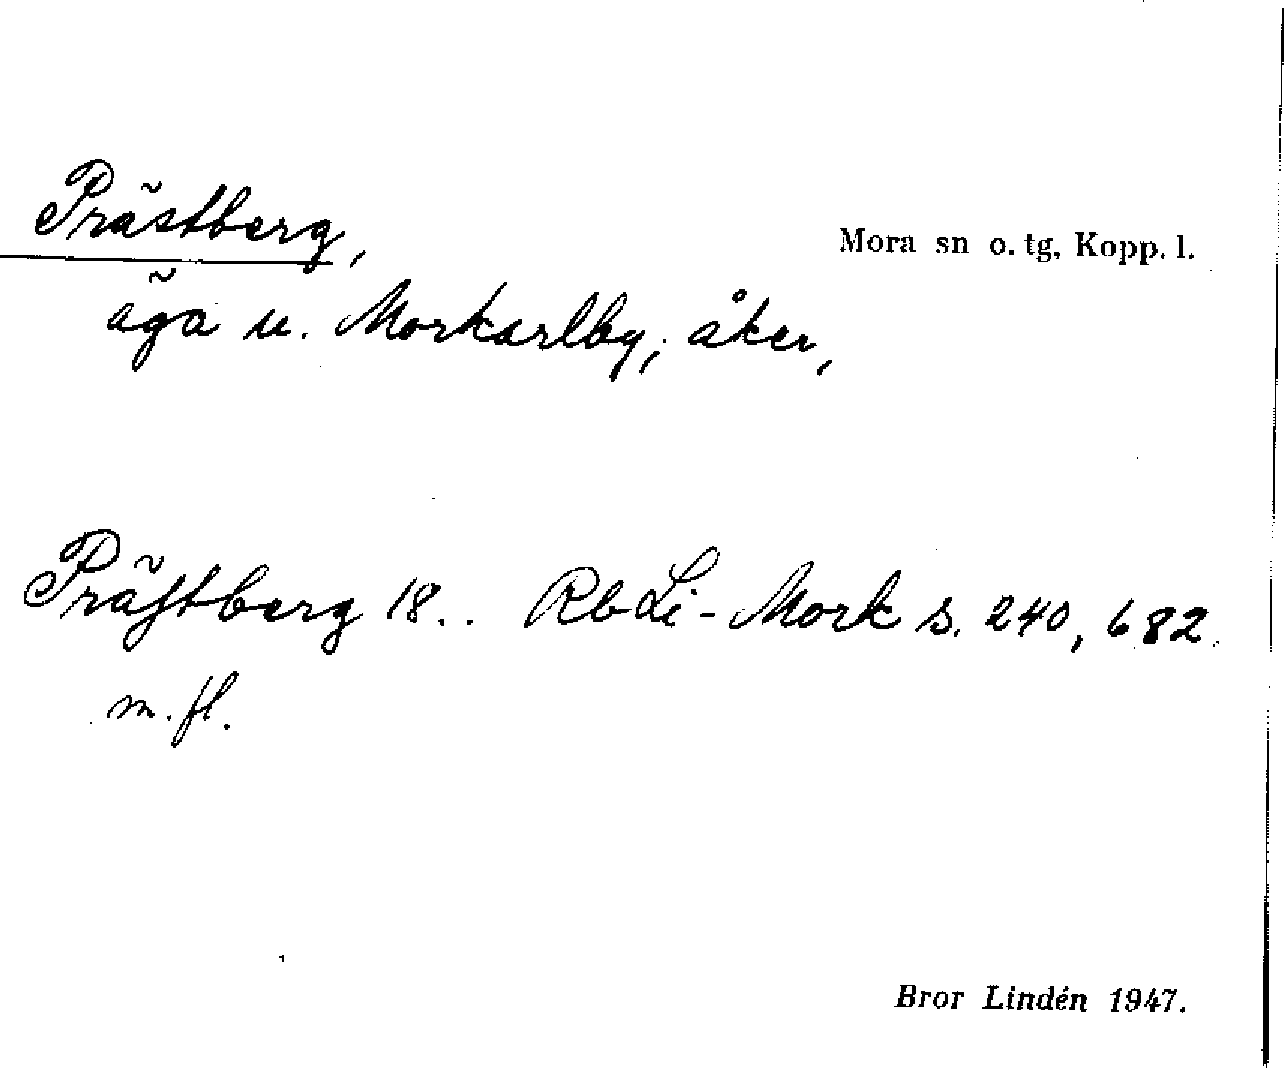 Prästberg,
Mora sn o. tg, Kopp. l.
äga u. Morkarlby; åker,
Präſtberg 18.. Rb Li-Mork s. 240, 682.
m. fl.
Bror Lindén 1947.